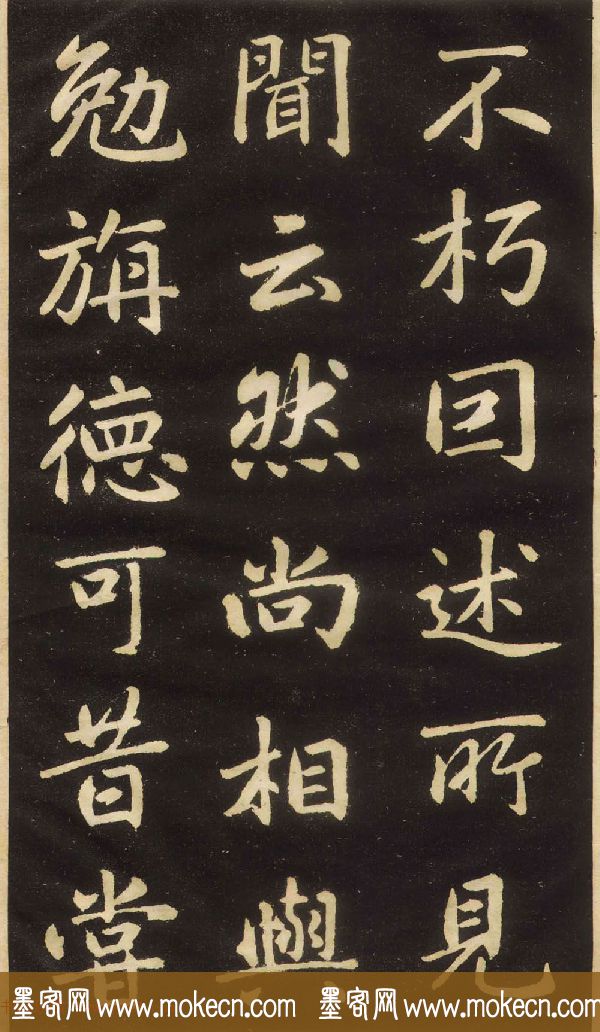 不朽囙述所見
聞云然尚相與
勉旃德可昔嘗
墨客网 www.mokecn.com 墨客网 www.mokecn.com